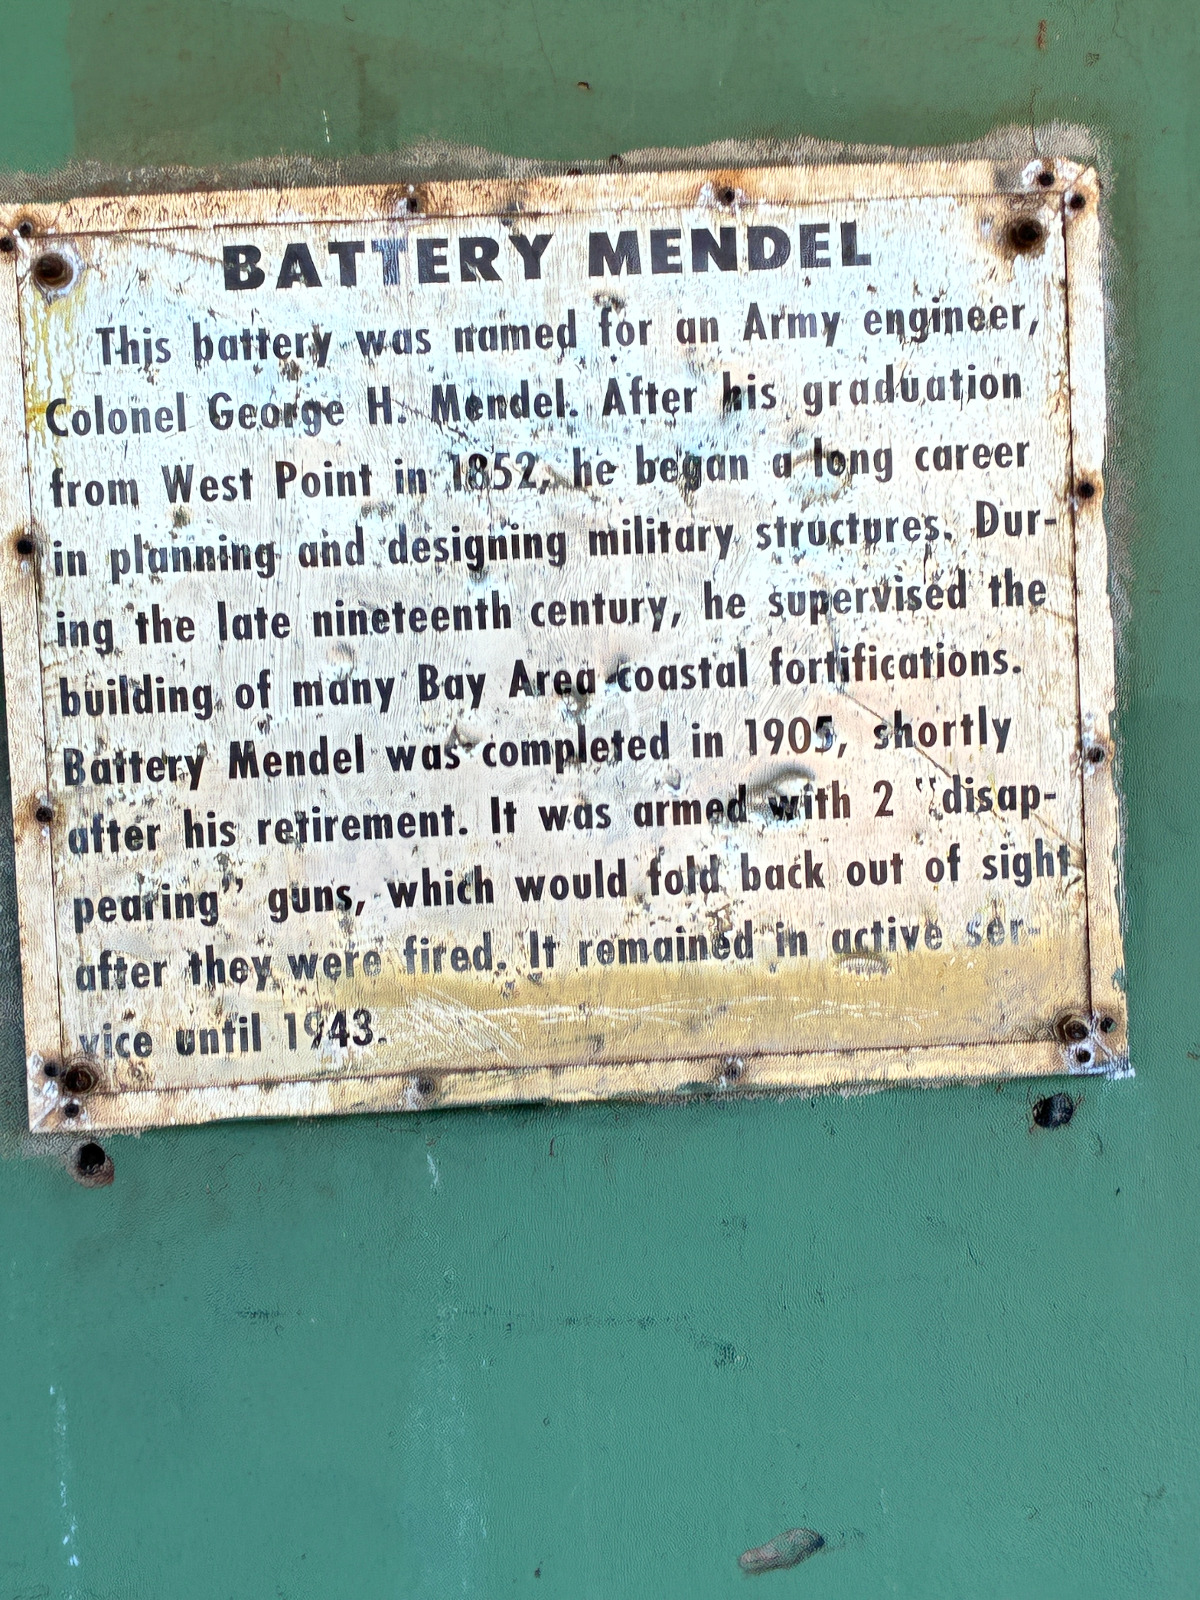 BATTERY MENDEL
This battery was named for an Army engineer,
Colonel George H. Mendel. After his graduation
from West Point in 1852, he began a long career
in planning and designing military structures. Dur-
ing the late nineteenth century, he supervised the
building of many Bay Area coastal fortifications.
Battery Mendel was completed in 1905, shortly
after his retirement. It was armed with 2 "disap-
pearing" guns, which would fold back out of sight
after they were fired. It remained in active ser-
vice until 1943.